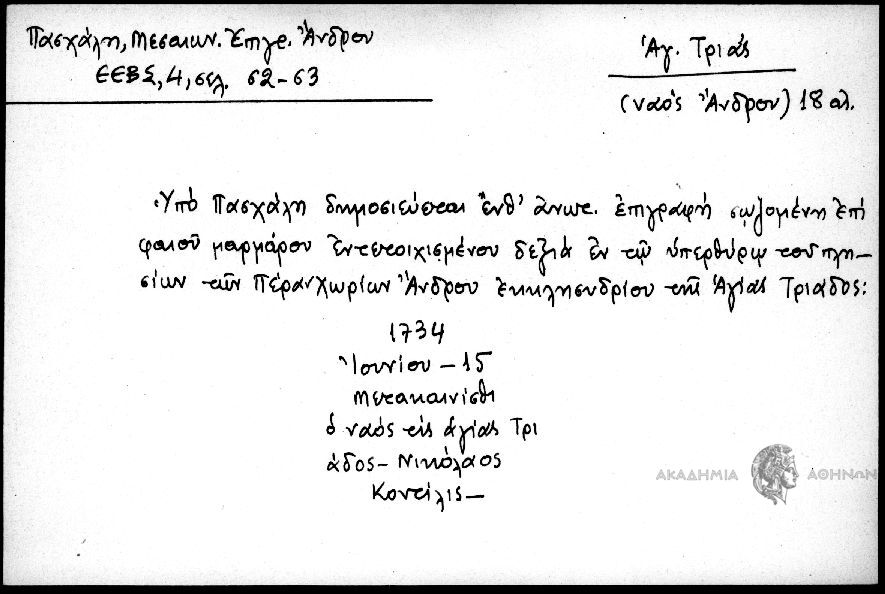 Πασχάλη, Μεσαιων. Ἐπιγρ. Ἄνδρου
ΕΕΒΣ, 4, σελ. 62-63
Ἁγ. Τριάς
(ναός Ἄνδρου) 18 αἰ.
Ὑπό Πασχάλη δημοσιεύεται ἔνθ' ἄνωτ. ἐπιγραφή σωζομένη ἐπί
φαιοῦ μαρμάρου ἐντετοιχισμένου δεξιά ἐν τῷ ὑπερθύρῳ τοῦ πλη-
σίων τῶν Πέρανχωρίων Ἄνδρου ἐκκλησυδρίου τῆς Ἁγίας Τριάδος:
1734
Ἰουνίου - 15
Μετακαινίσθι
ὁ ναός τῆς ἁγίας Τρι
άδος - Νικόλαος
Κοντίλις -
ΑΚΑΔΗΜΙΑ ΑΘΗΝΩΝ